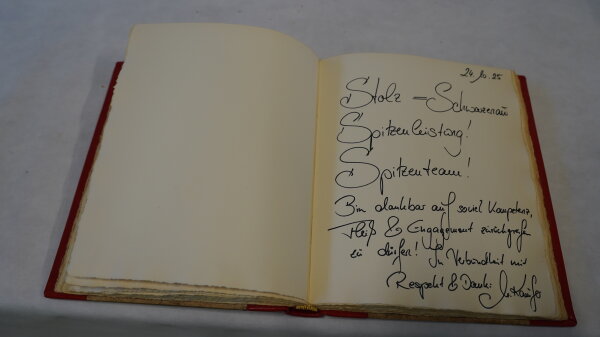 24.10.25
Stolz = Schwarzenau
Spitzenleistung!
Spitzenteam!
Bin dankbar auf soviel Kompetenz,
Fleiß & Engagement zurückgreifen
zu dürfen! In Verbundenheit mit
Respekt & Dank: